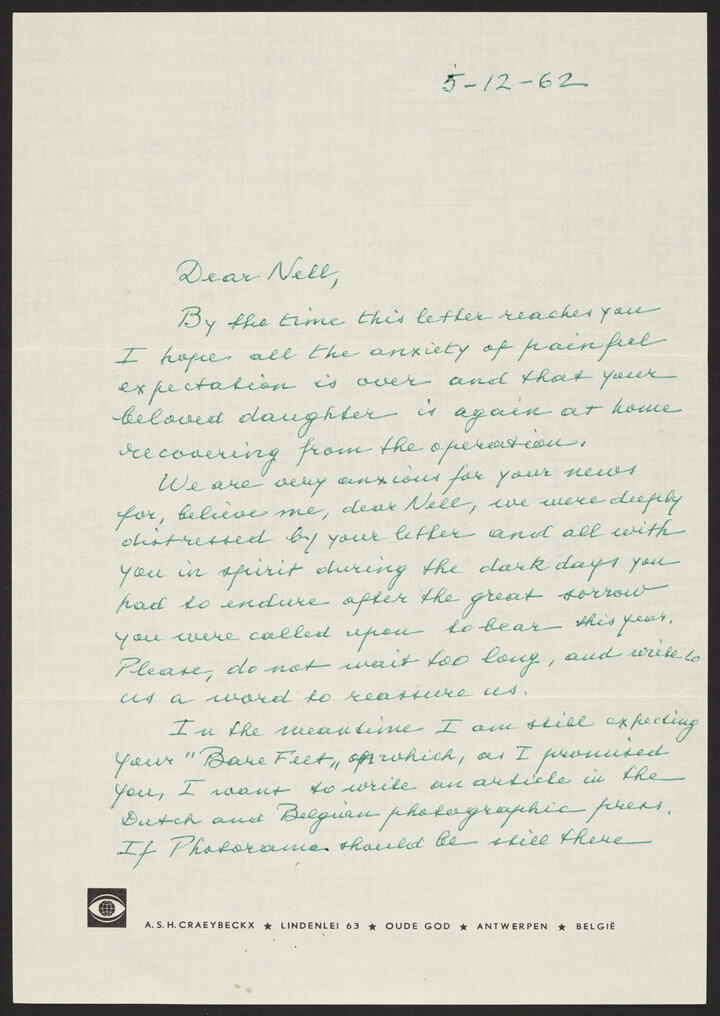 5-12-62
Dear Nell,
By the time this letter reaches you
I hope all the anxiety of painful
expectation is over and that your
beloved daughter is again at home
recovering from the operation.
We are very anxious for your news
for, believe me, dear Nell, we were deeply
distressed by your letter and all with
you in spirit during the dark days you
had to endure after the great sorrow
you were called upon to bear this year.
Please, do not wait too long, and write to
us a word to reassure us.
In the meantime I am still expecting
your "Bare Feet„ of which, as I promised
you, I want to write an article in the
Dutch and Belgian photographic press.
If Photorama should be still there
A.S.H. CRAEYBECKX ★ LINDENLEI 63 ★ OUDE GOD ★ ANTWERPEN ★ BELGIË